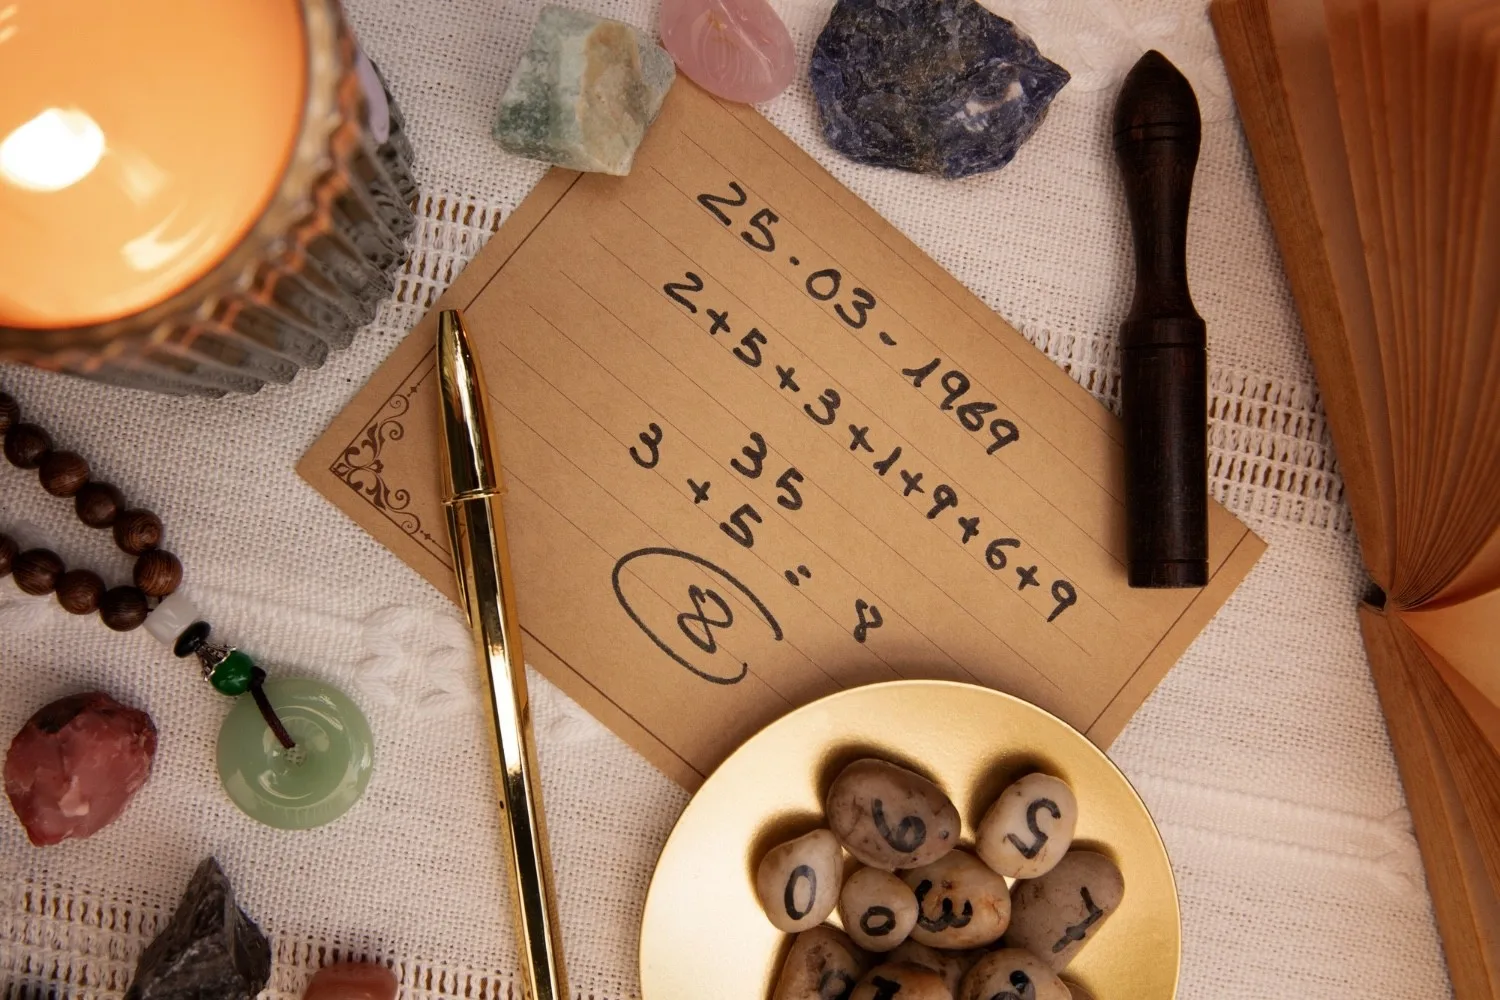 25.03-1969
2+5+3+1+9+6+9
35
3+5 "
8
8
9
5
0
0
3
7